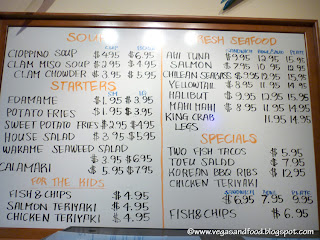 SOUP
CUP
CIOPPINO SOUP $4.95 $6.95
CLAM MISO SOUP $2.95 $4.95
CLAM CHOWDER $3.95 $5.95
STARTERS
SM
EDAMAME $1.95 $3.95
POTATO FRIES $1.95 $3.95
SWEET POTATO FRIES $2.95 $4.95
HOUSE SALAD $3.95 $5.95
WAKAME SEAWEED SALAD
$3.95 $6.95
CALAMARI $5.95 $7.95
FOR THE KIDS
FISH & CHIPS $4.95
SALMON TERIYAKI $4.95
CHICKEN TERIYAKI $4.95
FRESH SEAFOOD
SANDWICH PLATE
AHI TUNA $9.95 12.95 15.95
SALMON
CHILEAN SEABASS
YELLOWTAIL
HALIBUT
MAHI MAHI
KING CRAB 11.95 14.95
LEGS
SPECIALS
TWO FISH TACOS $5.95
TOFU SALAD $7.95
KOREAN BBQ RIBS $12.95
CHICKEN TERIYAKI
SANDWICH PLATE
$6.95 7.95 9.95
FISH & CHIPS $6.95
www.vegasandfood.blogspot.com